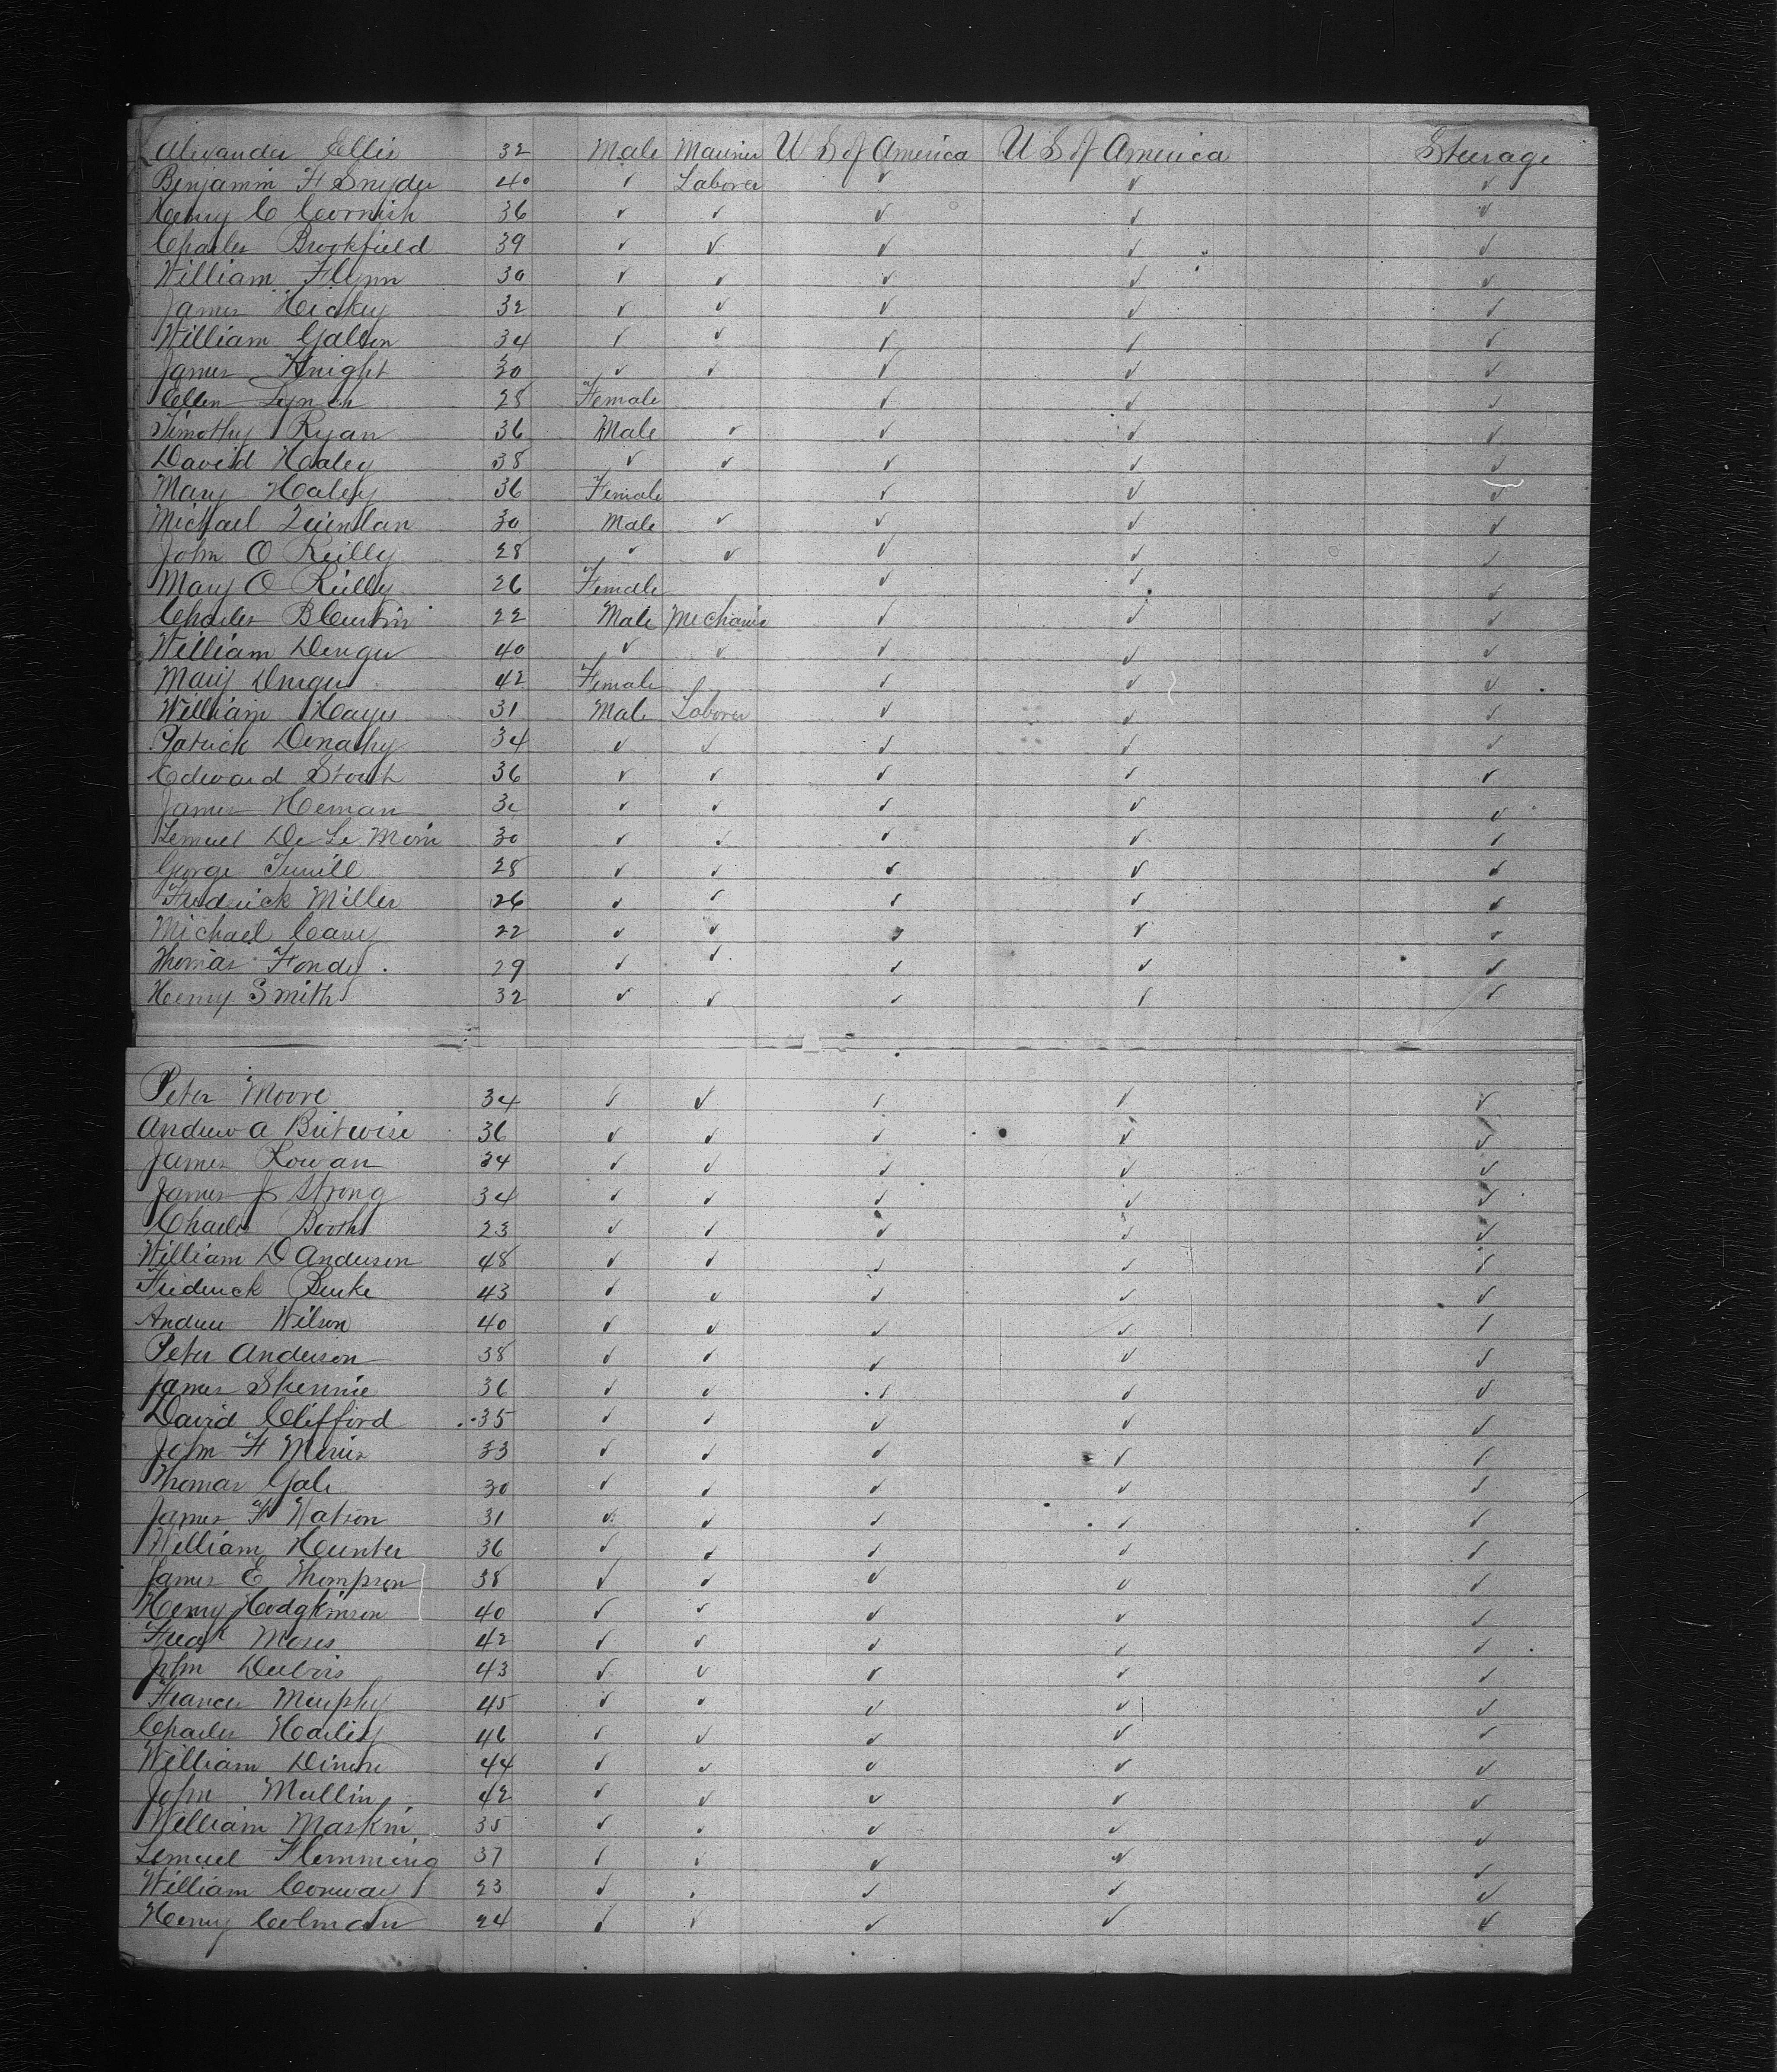 Alexander Ellis 32 Male Mariner U S of America U S of America Steerage
Benjamin H Snyder 40 ✓ Laborer ✓ ✓ ✓
Henry C Cornish 36 ✓ ✓ ✓ ✓ ✓
Charles Brookfield 39 ✓ ✓ ✓ ✓ ✓
William Flynn 30 ✓ ✓ ✓ ✓ ✓
James Hickey 32 ✓ ✓ ✓ ✓ ✓
William 34 ✓ ✓ ✓ ✓ ✓
James Knight 30 ✓ ✓ ✓ ✓ ✓
Ellen Lynch 28 Female ✓ ✓ ✓
Timothy Ryan 36 Male ✓ ✓ ✓ ✓
David Haley 38 ✓ ✓ ✓ ✓ ✓
Mary Haley 36 Female ✓ ✓ ✓
Michael Quinlan 30 Male ✓ ✓ ✓ ✓
John O Reilly 28 ✓ ✓ ✓ ✓ ✓
Mary O Reilly 26 Female ✓ ✓ ✓
Charles 22 Male Mechanic ✓ ✓ ✓
William 40 ✓ ✓ ✓ ✓ ✓
Mary 42 Female ✓ ✓ ✓
William Hayes 31 Male Laborer ✓ ✓ ✓
Patrick Denahy 34 ✓ ✓ ✓ ✓ ✓
Edward Stout 36 ✓ ✓ ✓ ✓ ✓
James Heman ✓ ✓ ✓ ✓ ✓
Lemuel De Le 30 ✓ ✓ ✓ ✓ ✓
George 28 ✓ ✓ ✓ ✓ ✓
Frederick Miller 26 ✓ ✓ ✓ ✓ ✓
Michael Carey 22 ✓ ✓ ✓ ✓ ✓
Thomas Fondy 29 ✓ ✓ ✓ ✓ ✓
Henry Smith 32 ✓ ✓ ✓ ✓ ✓
Peter Moore 34 ✓ ✓ ✓ ✓ ✓
Andrew A Britwise 36 ✓ ✓ ✓ ✓ ✓
James Rowan 34 ✓ ✓ ✓ ✓ ✓
James J Strong 34 ✓ ✓ ✓ ✓ ✓
Charles Booth 23 ✓ ✓ ✓ ✓ ✓
William D Anderson 48 ✓ ✓ ✓ ✓ ✓
Frederick Burke 43 ✓ ✓ ✓ ✓ ✓
Andrew Wilson 40 ✓ ✓ ✓ ✓ ✓
Peter Anderson 38 ✓ ✓ ✓ ✓ ✓
James 36 ✓ ✓ ✓ ✓ ✓
David Clifford 35 ✓ ✓ ✓ ✓ ✓
John H 33 ✓ ✓ ✓ ✓ ✓
Thomas Gale 30 ✓ ✓ ✓ ✓ ✓
James H Watson 31 ✓ ✓ ✓ ✓ ✓
William Hunter 36 ✓ ✓ ✓ ✓ ✓
James E Thompson 38 ✓ ✓ ✓ ✓ ✓
Henry Hodgkinson 40 ✓ ✓ ✓ ✓ ✓
Moses 42 ✓ ✓ ✓ ✓ ✓
John Dubois 43 ✓ ✓ ✓ ✓ ✓
Frances Murphy 45 ✓ ✓ ✓ ✓ ✓
Charles Harley 46 ✓ ✓ ✓ ✓ ✓
William 44 ✓ ✓ ✓ ✓ ✓
John Mullin 42 ✓ ✓ ✓ ✓ ✓
William Maskin 35 ✓ ✓ ✓ ✓ ✓
Lemuel Flemming 37 ✓ ✓ ✓ ✓ ✓
William Conway 23 ✓ ✓ ✓ ✓ ✓
Henry Colman 24 ✓ ✓ ✓ ✓ ✓